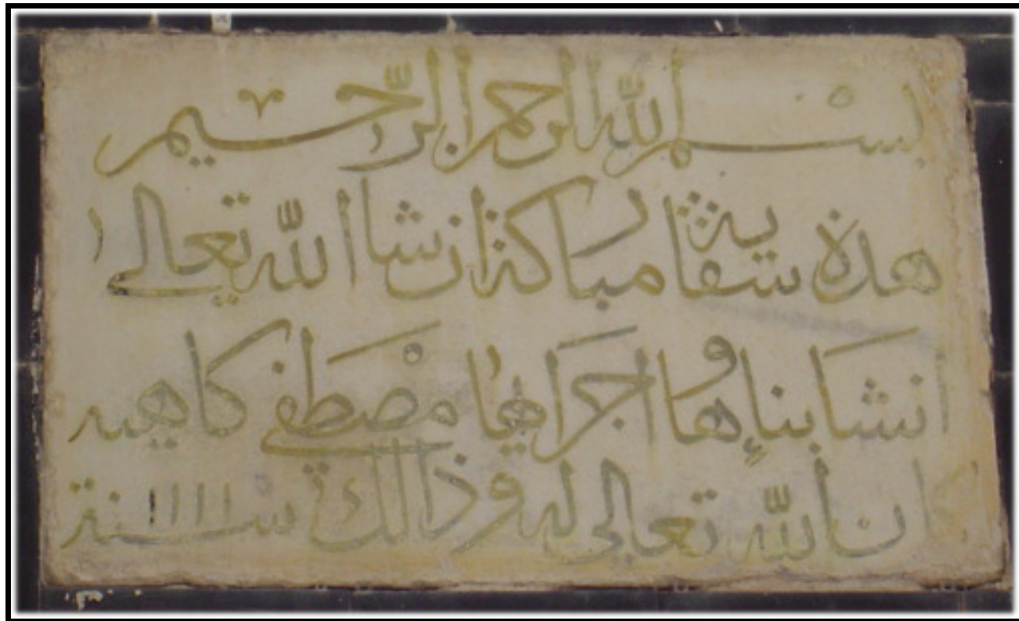 بسم الله الرحمن الرحيم
هذه سقاية مباركة ان شا الله تعالى
انشا بناءها واجراها مصطفى كاهيه
كان الله تعالى له وذالك سنة ١١١١